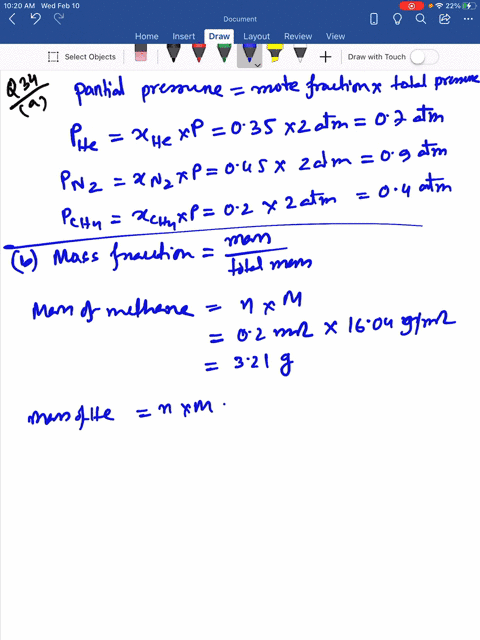 10:20 AM Wed Feb 10
22%
Document
Home Insert Draw Layout Review View
Select Objects
Draw with Touch
Q34
(a) Partial pressure = mole fraction × total pressure
P_He = x_He × P = 0.35 × 2 atm = 0.7 atm
P_N2 = x_N2 × P = 0.45 × 2 atm = 0.9 atm
P_CH4 = x_CH4 × P = 0.2 × 2 atm = 0.4 atm
(b) Mass fraction = mass / total mass
Mass of methane = n × M
= 0.2 mol × 16.04 g/mol
= 3.21 g
mass of He = n × M .